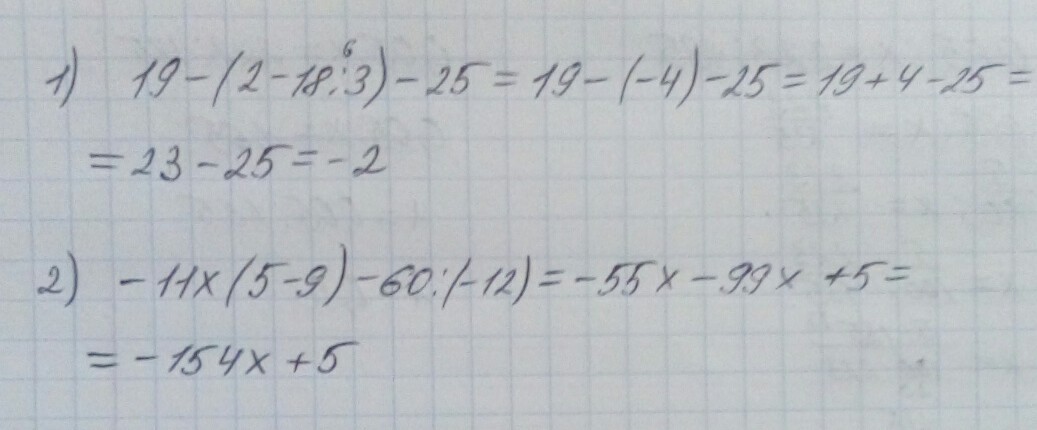 1) 19-(2-18:3)-25=19-(-4)-25=19+4-25=
6
=23-25=-2
2) -11x(5-9)-60:(-12)=-55x-99x+5=
=-154x+5